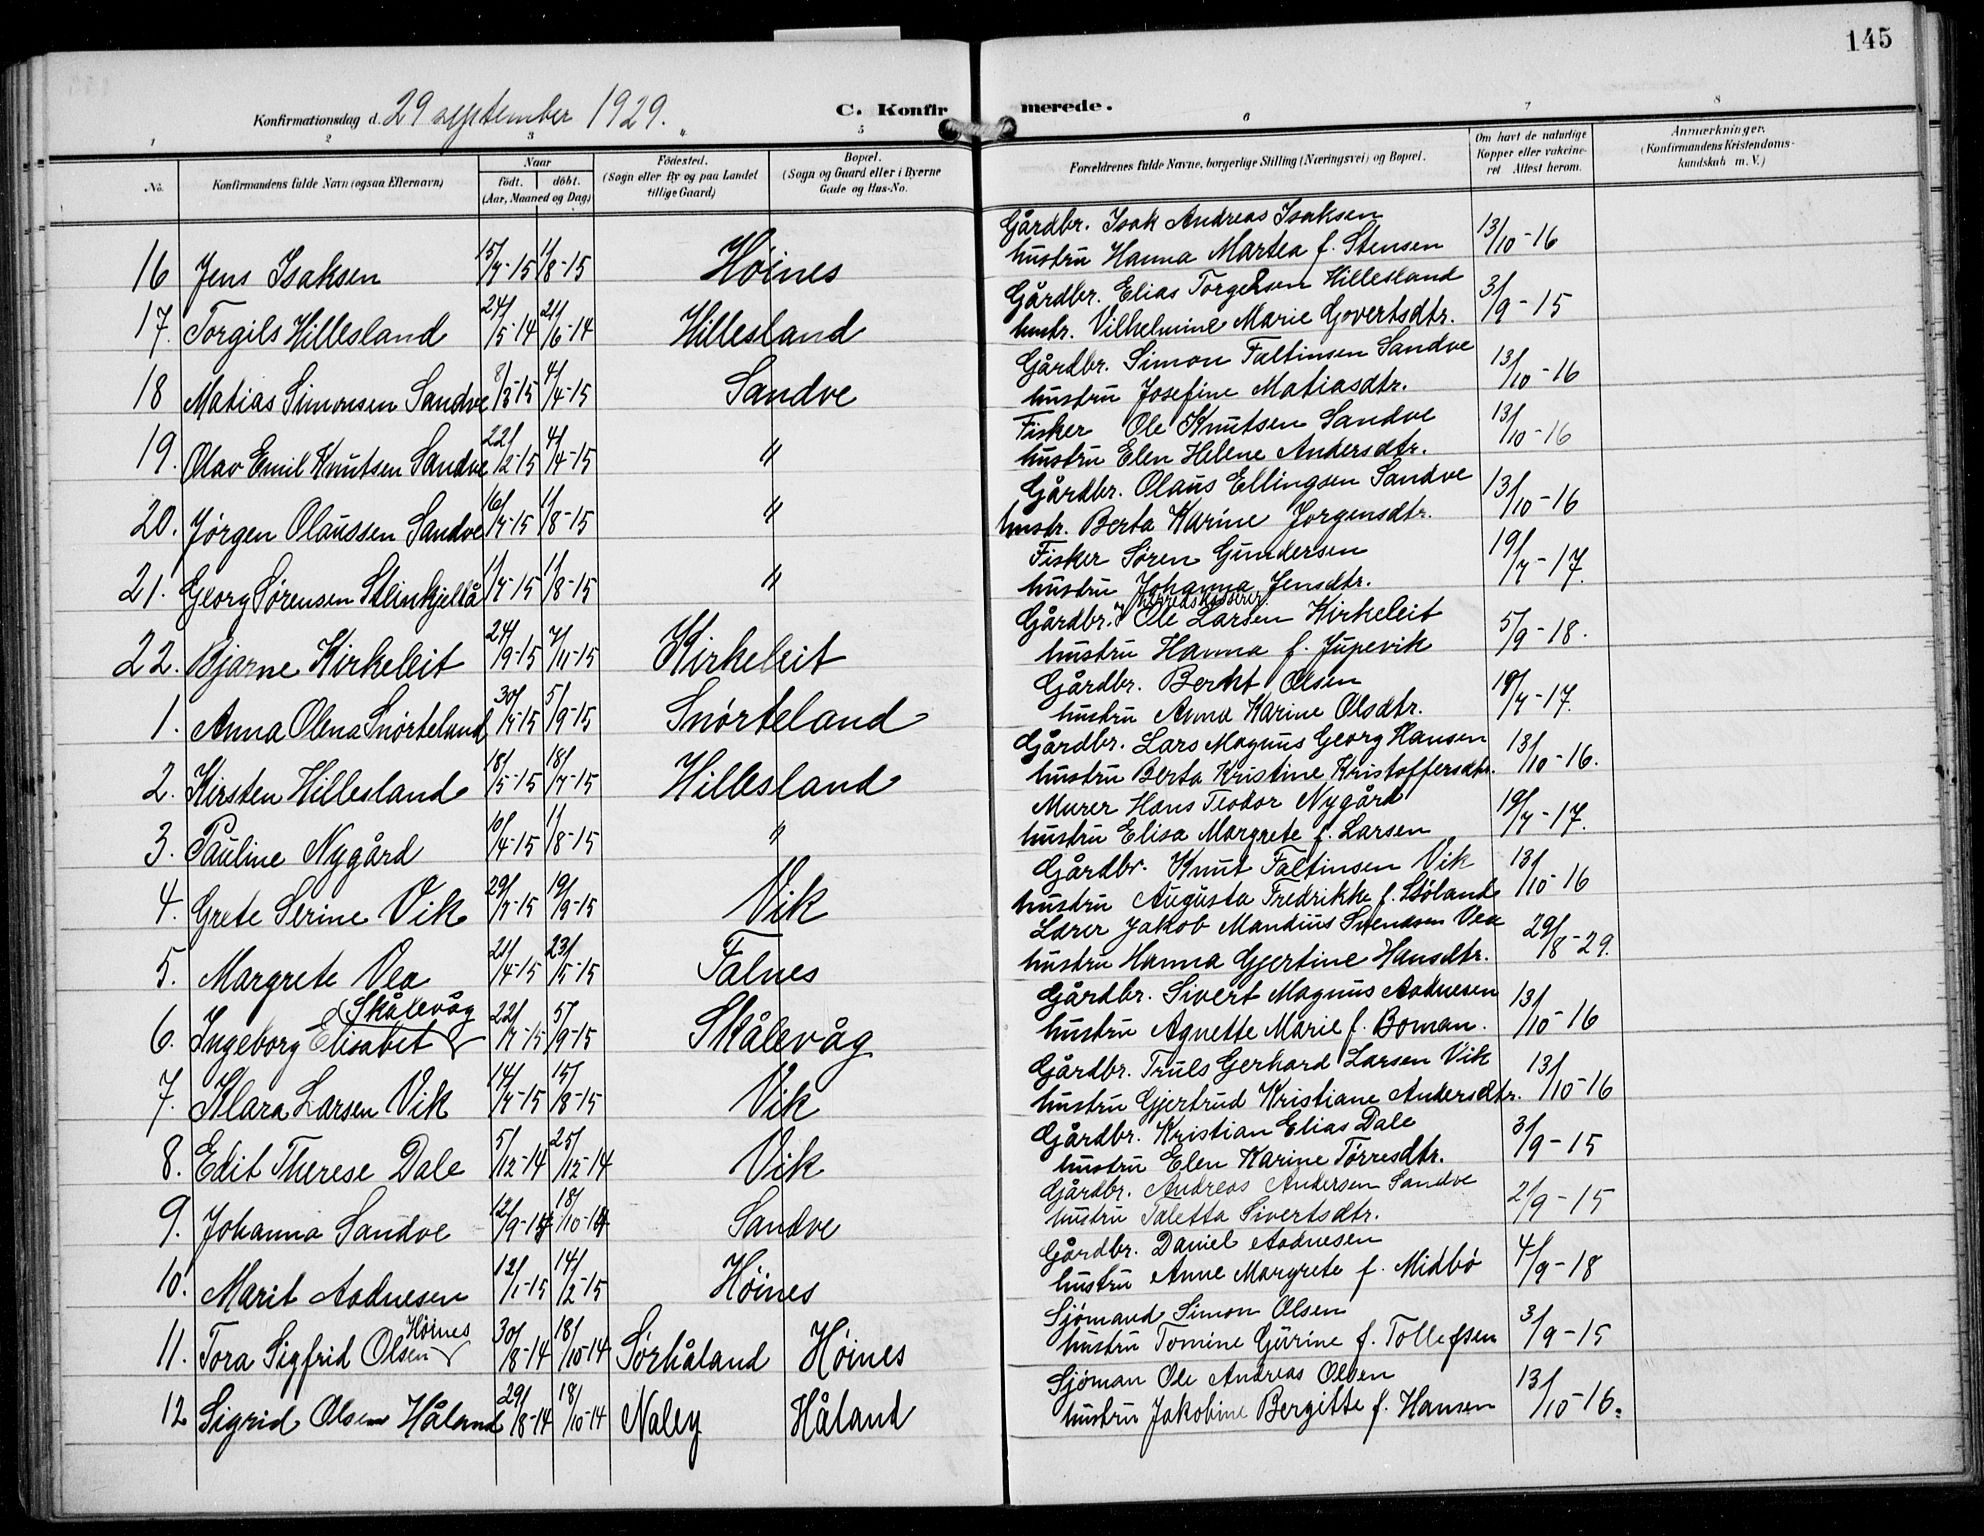 145
Konfirmationsdag d. 29 september 1929.
C. Konfirmerede.
1 2 3 5 6 7 8
No. Konfirmandens fulde Navn (ogsaa Efternavn) Naar født. døbt. (Aar, Maaned og Dag) Fødested. (Sogn eller By og paa Landet tillige Gaard) Bopæl. (Sogn og Gaard eller i Byerne Gade og Hus-No. Forældrenes fulde Navne, borgerlige Stilling (Næringsvei) og Bopæl. Om havt de naturlige Kopper eller vakcineret Attest herom. Anmærkninger. (Konfirmandens Kristendomskundskab m. V.)
16 Jens Isaksen 15/7-15 1/8-15 Høines Gårdbr. Isak Andreas Isaksen 13/10-16
hustru Hanna Martea f. Stensen
17. Torgils Hillesland 24/5-14 21/6-14 Hillesland Gårdbr. Elias Torgersen Hillesland 3/9-15
hustr. Vilhelmine Marie Govertsdtr.
18 Matias Simonsen Sandve 8/3-15 4/4-15 Sandve Gårdbr. Simon Faltinsen Sandve 13/10-16
hustru Josefine Matiasdtr.
19. Olav Emil Knutsen Sandve 22/2-15 4/4-15 " Fisker Ole Knutsen Sandve 13/10-16
hustru Elen Helene Andersdtr.
20. Jørgen Olaussen Sandve 16/7-15 1/8-15 " Gårdbr. Olaus Ellingsen Sandve 13/10-16
hustr. Berta Karine Jorgensdtr.
21. Georg Sørensen Steinkjellå 1/7-15 1/8-15 " Fisker Søren Gundersen 19/7-17.
hustru Johanna Jensdtr.
22. Bjarne Kirkeleit 24/9-15 7/11-15 Kirkeleit Gårdbr. & herredskasserer Ole Larsen Kirkeleit 5/9-18.
hustru Hanna f. Jupevik
1. Anna Olena Snørteland 30/7-15 5/9-15 Snørteland Gårdbr. Berht Olsen 19/7-17.
hustru Anna Karine Olsdtr.
2. Kirsten Hillesland 18/5-15 18/7-15 Hillesland Gårdbr. Lars Magnus Georg Hansen 13/10-16.
hustru Berta Kristine Kristoffersdtr.
3. Pauline Nygård 10/4-15 1/8-15 " Murer Hans Teodor Nygård 19/7-17.
hustru Elisa Margrete f. Larsen
4. Grete Serine Vik 29/7-15 19/9-15 Vik Gårdbr. Knut Faltinsen Vik 13/10-16
hustru Augusta Fredrikke f. Stöland
5. Margrete Vea 21/4-15 23/5-15 Falnes Lærer Jakob Mandius Svendsen Vea 29/8-29.
hustru Hanna Gjertine Hansdtr.
6. Ingeborg Elisabet Skålevåg 22/7-15 5/9-15 Skålevåg Gårdbr. Sivert Magnus Aadnesen 13/10-16
hustru Agnette Marie f. Boman.
7. Klara Larsen Vik 14/7-15 15/8-15 Vik Gårdbr. Truls Gerhard Larsen Vik 13/10-16
hustru Gjertrud Kristiane Andersdtr.
8. Edit Therese Dale 5/12-14 25/12-14 Vik Gårdbr. Kristian Elias Dale 3/9-15
hustru Elen Karine Tørresdtr.
9. Johanna Sandve 12/9-14 18/10-14 Sandve Gårdbr. Andreas Andersen Sandve 2/9-15
hustru Taletta Sivertsdtr.
10. Marit Aadnesen 12/1-15 14/2-15 Höines Gårdbr. Daniel Aadnesen 4/9-18
hustru Anne Margrete f. Midbö
11. Tora Sigfrid Olsen Höines 30/8-14 18/10-14 Sørhåland Höines Sjömand Simon Olsen 3/9-15
hustru Tomine Gurine f. Tollefsen
12 Sigrid Olsen Håland 29/8-14 18/10-14 Naley Håland Sjöman Ole Andreas Olsen 13/10-16.
hustru Jakobine Bergitte f. Hansen